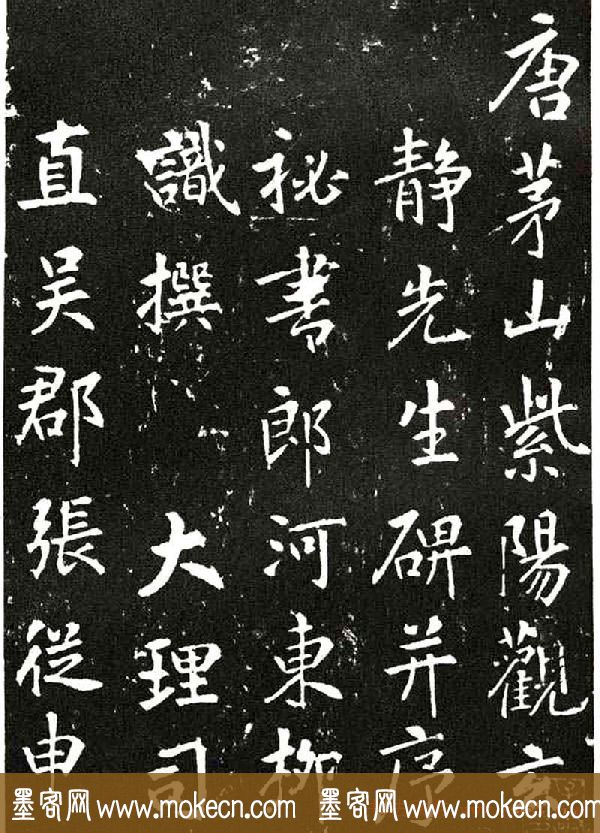 唐茅山紫陽觀玄
靜先生碑并序
祕書郎河東柳
識撰 大理司
直吳郡張從申
墨客网www.mokecn.com 墨客网www.mokecn.com